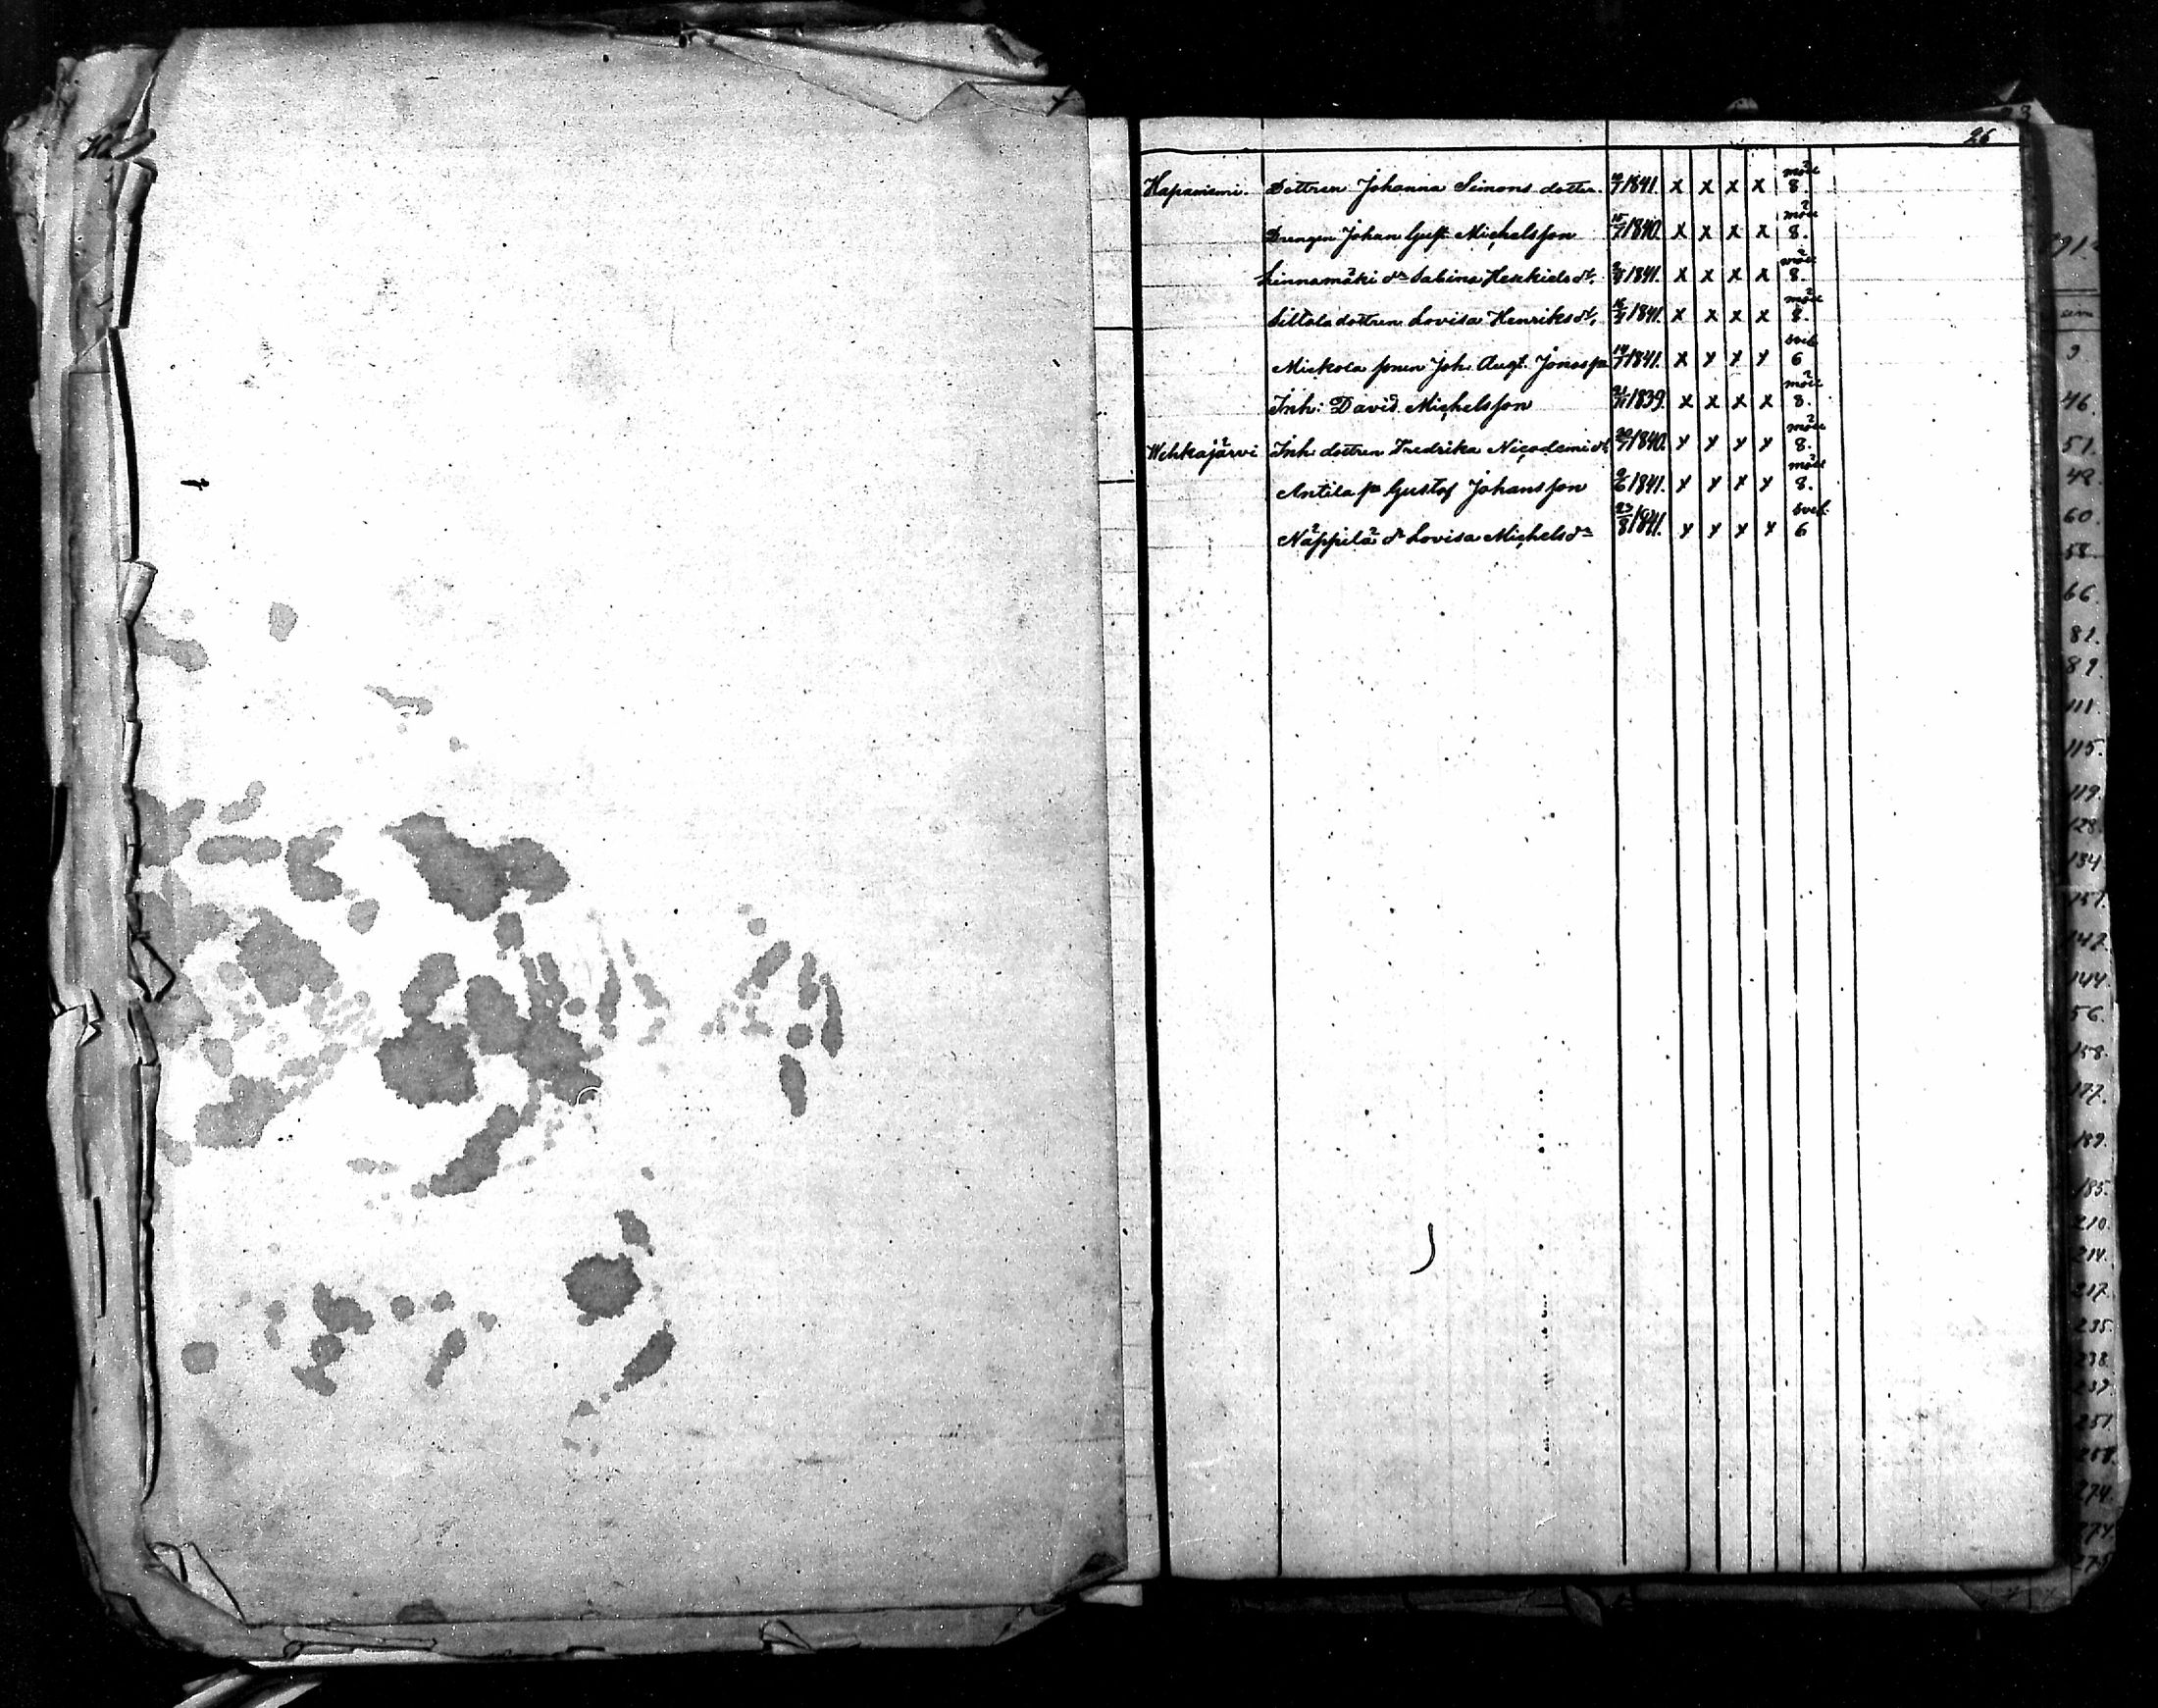 26
Hapaniemi. Dottren Johanna Simons dotter. 1841. x x x x möll 8.
Drengen Johan Gust. Michelsson 15/7 1840. x x x x möll 8.
Linnamäki dr Sabina Heskiels dr. 1841. x x x x möll 8.
Siltola dottren Lovisa Henriks dr. 1841. x x x x möll 8.
Mickola sonen Joh. Aug. Jonass. 1841. x x x x 6
Inh: David Michelsson 1839. x x x x möll 8.
Wehkajärvi Inh. dottren Fredrika Nicodemi dr. 1840. x x x x möll 8.
Antila sn Gustaf Johansson 1841. x x x x möll 8.
Näppilä dr Lovisa Michels dr 23/8 1841. x x x x 6
9
46.
51.
49.
60.
58.
66.
81.
89.
111.
115.
119.
128.
134
144
158.
177.
189.
185.
210.
214.
217.
235.
238.
251
258.
274.